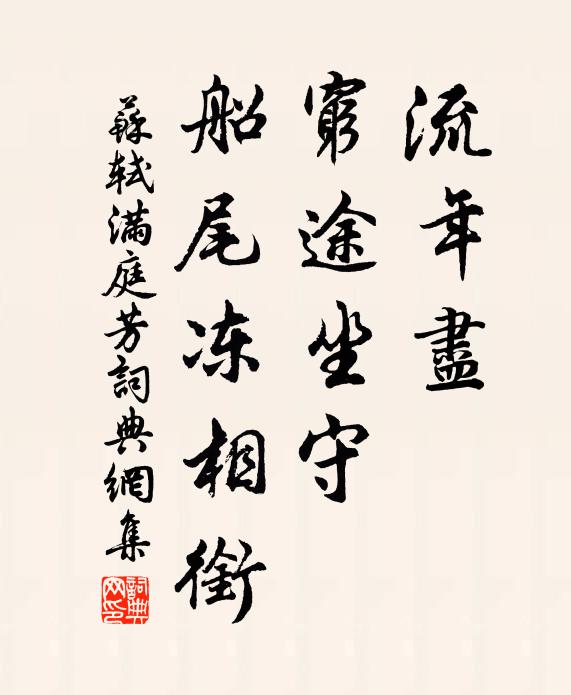 流年盡
窮途坐守
船尾冻相銜
蘇軾滿庭芳詞典網集
詞典
网印